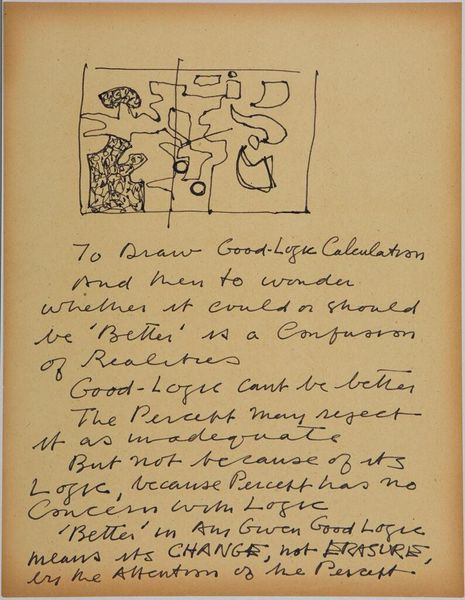 To Draw Good-Logic Calculation
And then to wonder
whether it could or should
be 'Better' is a Confusion
of Realities
Good-Logic cant be better
The Percept may reject
it as inadequate
But not because of its
Logic, because Percept has no
Concern with Logic
'Better' in Any Given Good Logic
means its CHANGE, not ERASURE,
by the Attention of the Percept